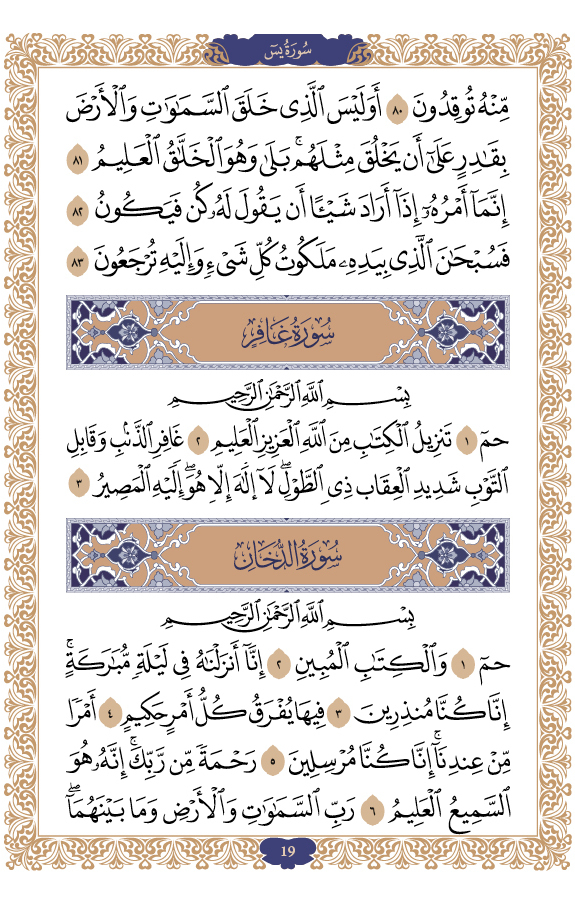 سُورَةُ يسٓ
مِّنْهُ تُوقِدُونَ ٨٠ أَوَلَيْسَ ٱلَّذِى خَلَقَ ٱلسَّمَـٰوَٰتِ وَٱلْأَرْضَ
بِقَـٰدِرٍ عَلَىٰٓ أَن يَخْلُقَ مِثْلَهُم ۚ بَلَىٰ وَهُوَ ٱلْخَلَّـٰقُ ٱلْعَلِيمُ ٨١
إِنَّمَآ أَمْرُهُۥٓ إِذَآ أَرَادَ شَيْـًٔا أَن يَقُولَ لَهُۥ كُن فَيَكُونُ ٨٢
فَسُبْحَـٰنَ ٱلَّذِى بِيَدِهِۦ مَلَكُوتُ كُلِّ شَىْءٍ وَإِلَيْهِ تُرْجَعُونَ ٨٣
سُورَةُ غَافِرٍ
بِسْمِ ٱللَّهِ ٱلرَّحْمَـٰنِ ٱلرَّحِيمِ
حمٓ ١ تَنزِيلُ ٱلْكِتَـٰبِ مِنَ ٱللَّهِ ٱلْعَزِيزِ ٱلْعَلِيمِ ٢ غَافِرِ ٱلذَّنۢبِ وَقَابِلِ
ٱلتَّوْبِ شَدِيدِ ٱلْعِقَابِ ذِى ٱلطَّوْلِ ۖ لَآ إِلَـٰهَ إِلَّا هُوَ ۖ إِلَيْهِ ٱلْمَصِيرُ ٣
سُورَةُ ٱلدُّخَانِ
بِسْمِ ٱللَّهِ ٱلرَّحْمَـٰنِ ٱلرَّحِيمِ
حمٓ ١ وَٱلْكِتَـٰبِ ٱلْمُبِينِ ٢ إِنَّآ أَنزَلْنَـٰهُ فِى لَيْلَةٍ مُّبَـٰرَكَةٍ ۚ
إِنَّا كُنَّا مُنذِرِينَ ٣ فِيهَا يُفْرَقُ كُلُّ أَمْرٍ حَكِيمٍ ٤ أَمْرًا
مِّنْ عِندِنَآ ۚ إِنَّا كُنَّا مُرْسِلِينَ ٥ رَحْمَةً مِّن رَّبِّكَ ۚ إِنَّهُۥ هُوَ
ٱلسَّمِيعُ ٱلْعَلِيمُ ٦ رَبِّ ٱلسَّمَـٰوَٰتِ وَٱلْأَرْضِ وَمَا بَيْنَهُمَآ ۖ
19